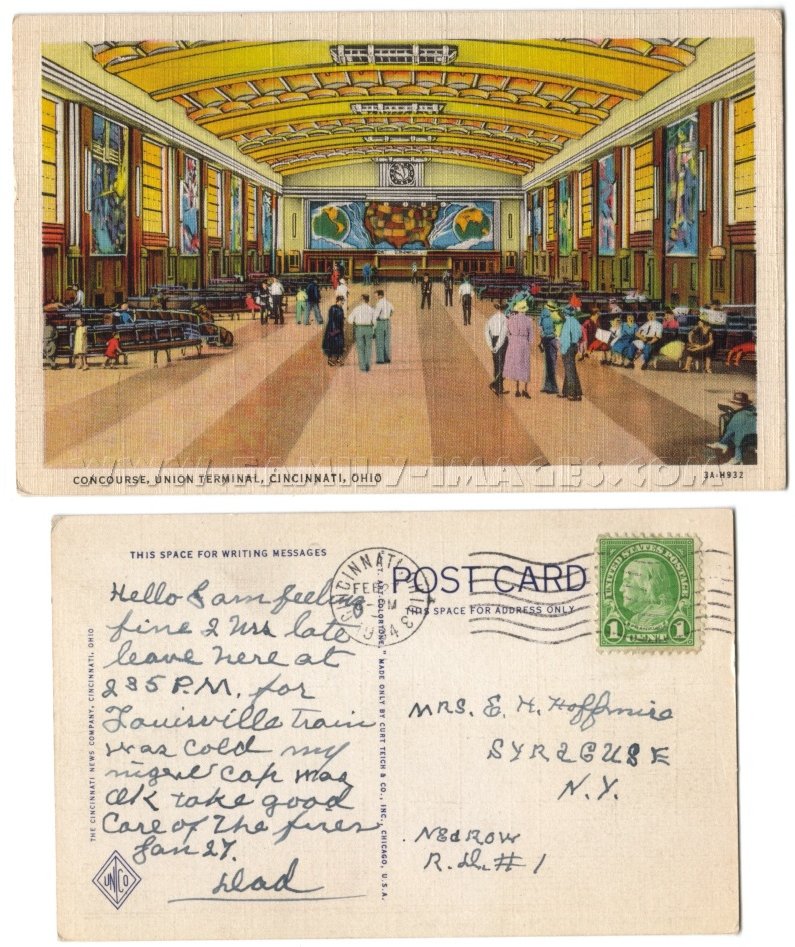 CONCOURSE, UNION TERMINAL, CINCINNATI, OHIO
3A-H932
WWW.FAMILY-IMAGES.COM
THIS SPACE FOR WRITING MESSAGES
POST CARD
THIS SPACE FOR ADDRESS ONLY
CINCINNATI, OHIO
FEB 2
6 - PM
1943
UNITED STATES POSTAGE
1 CENT 1
Hello I am feeling
fine 2 Hrs late
leave here at
2 35 P.M. for
Louisville train
was cold my
night cap was
OK take good
Care of The fires
Jan 27.
Dad
MRS. E. H. Hoffmire
SYRACUSE
N.Y.
NEdROW
R.D. # 1
THE CINCINNATI NEWS COMPANY, CINCINNATI, OHIO
"C. T. ART-COLORTONE" MADE ONLY BY CURT TEICH & CO., INC., CHICAGO, U.S.A.
UNCO